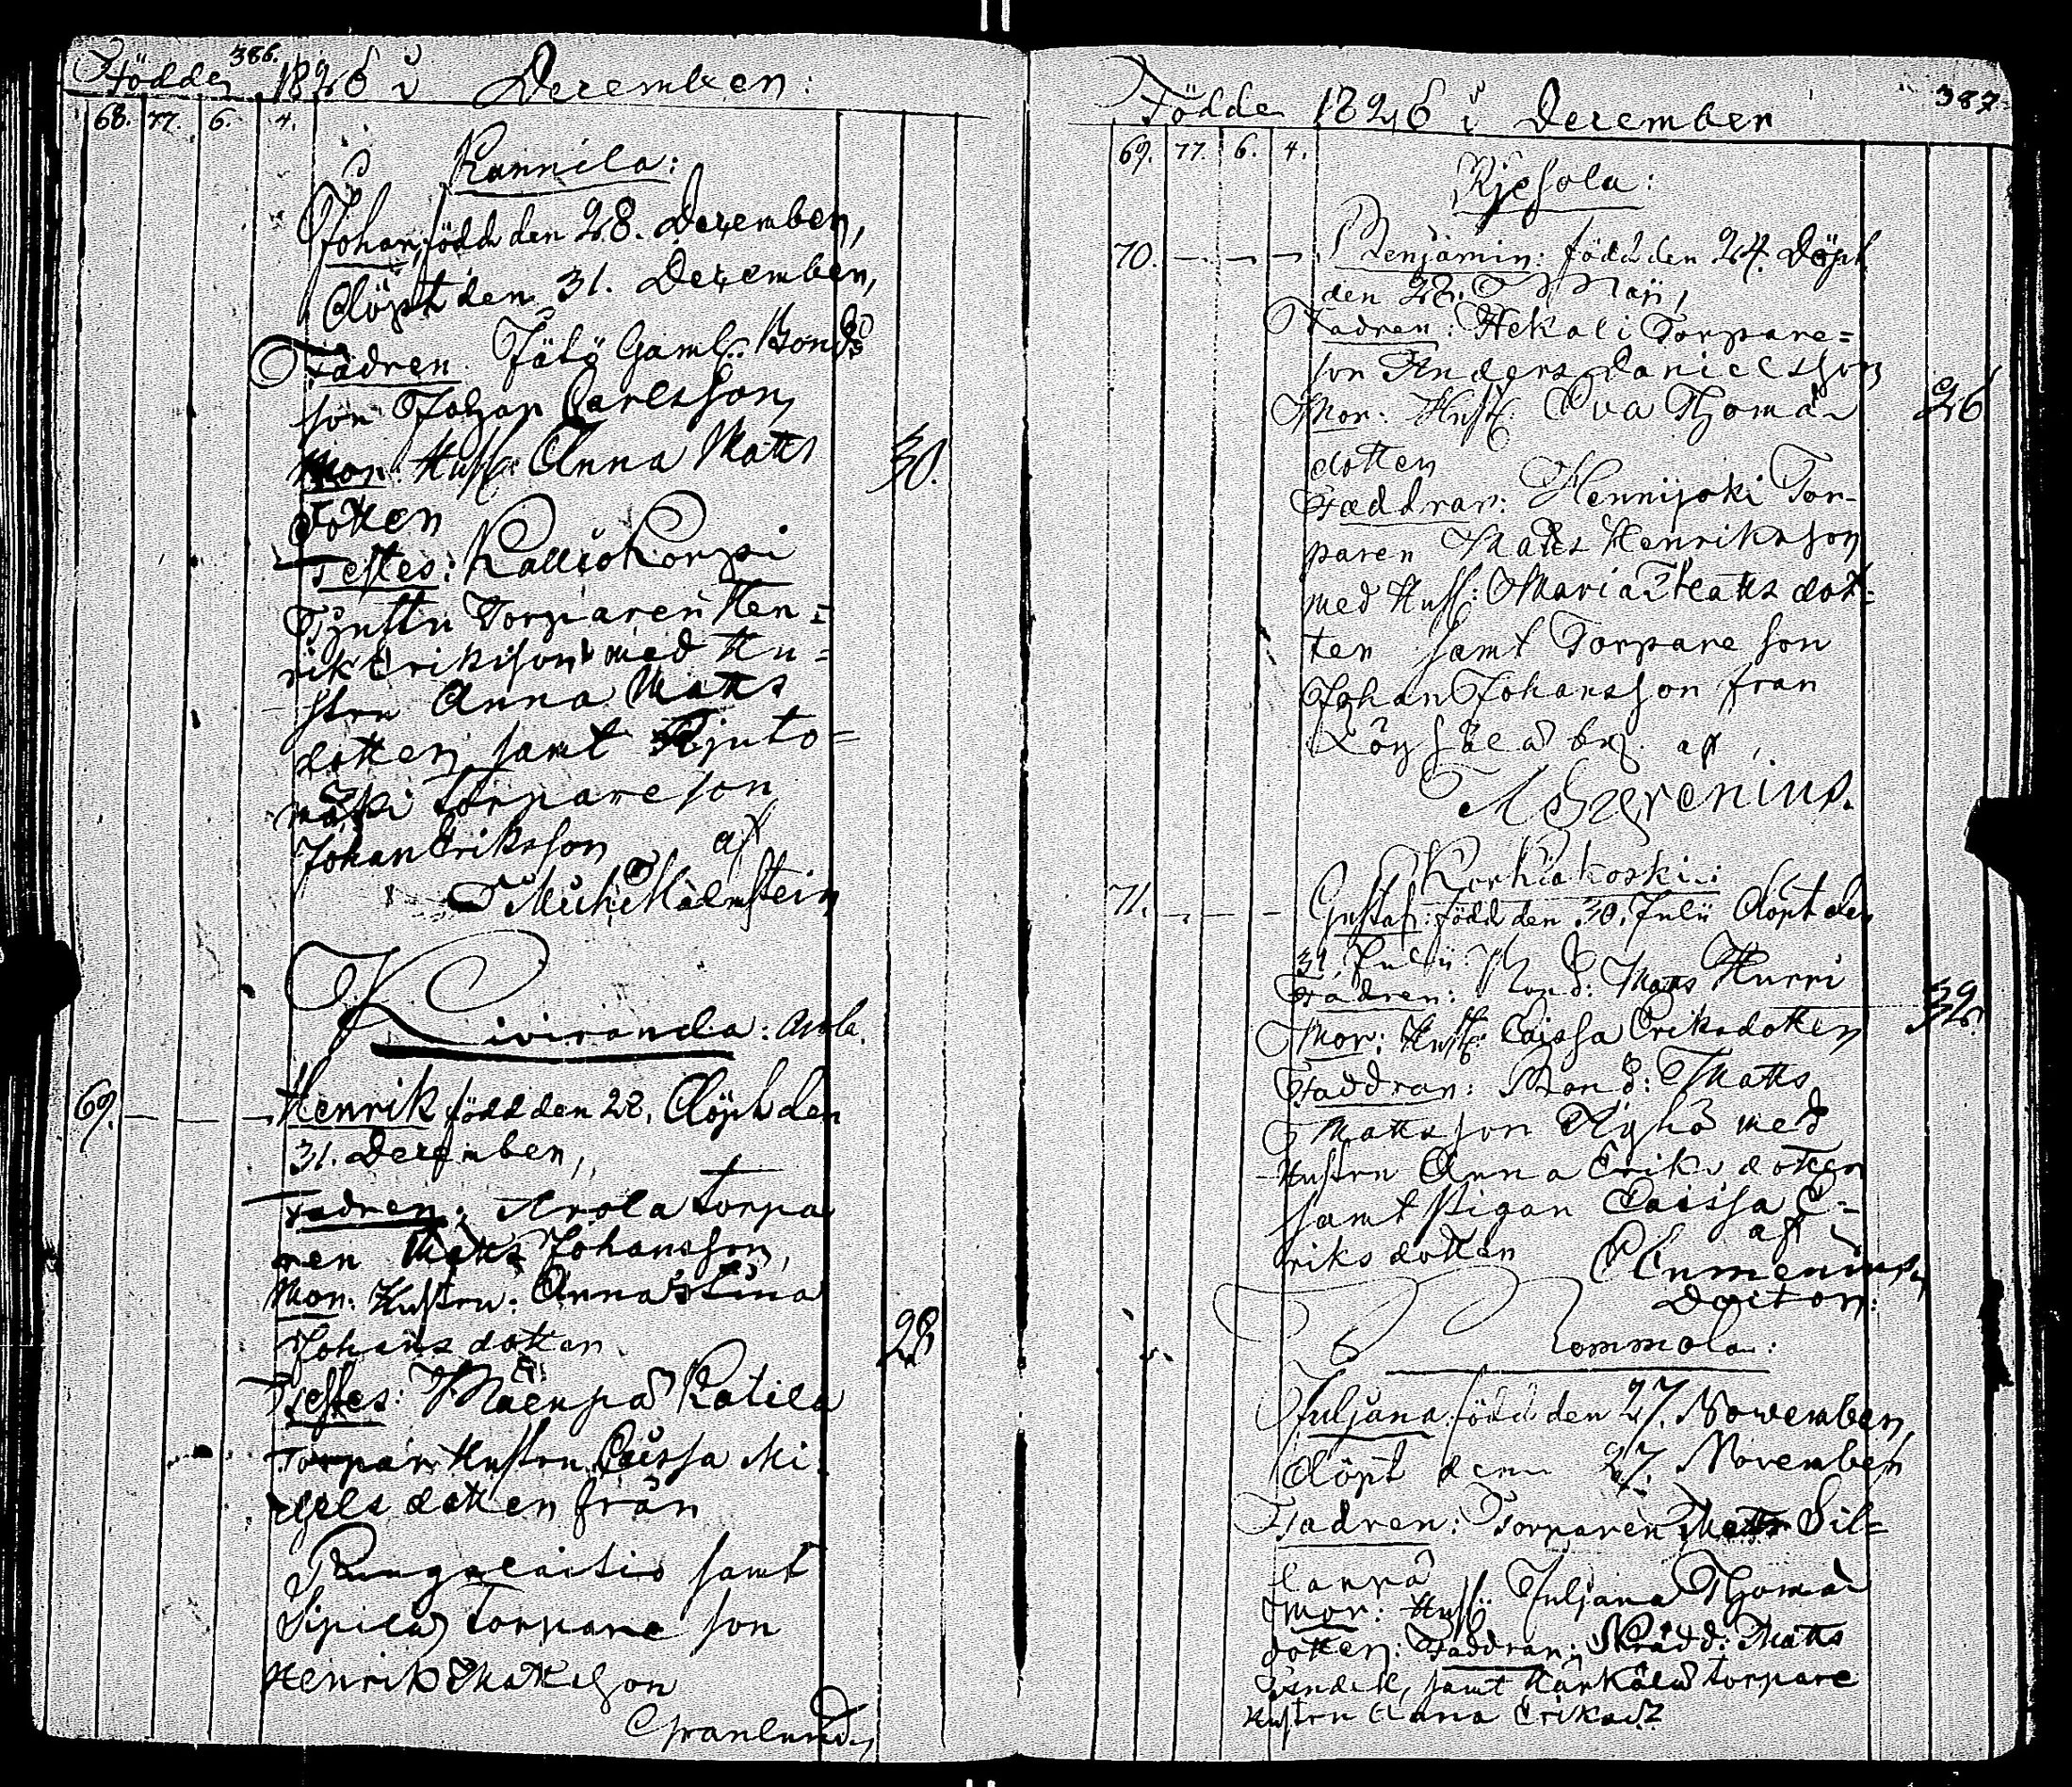 386.
Födde 1826 i December:
68. 77. 6. 4.
Kannila:
Johan, född den 28. December,
döpt den 31. December,
Fadren. Gaml: Bonds
son Johan Carlsson,
Mor. Hust: Anna Matts
dotter
30.
Testes: Kalliokorpi
Torparen Hen=
rik Eriksson med Hu=
stru Anna Matts
dotter, samt
mäki torpare son
Johan Eriksson af
Mich: Malmstein
Kiviranda: Arola.
69. Henrik född den 28. döpt den
31. December,
Fadren: Arola torpa
ren Matts Johansson,
Mor: Hustru: Anna Stina
Johans dotter
28
Testes: Mäenpä Katila
Torpar Hustru Caissa Mi
chels dotter från
Pungalaitio samt
Sipilä torpare son
Henrik Mattsson
Granlund,
387
Födde 1826 i December
69. 77. 6. 4.
70. Benjamin: född den 24. döpt
den 28. Maji,
Fadren: Hekali Torpare=
son Anders Danielsson
Mor: Hust: Eva Thomas
dotter
26
Faddrar: Hennijoki Tor-
paren Matts Henriksson
med Hust: Maria Matts dot=
ter samt Torpare son
Johan Johansson från
af
Korkiakoski:
71. Gustaf: född den 30. Julii döpt den
31 Julii
Fadren: Bond: Matts Hurri
32.
Mor: Hust: Caissa Eriksdotter
Faddrar: Bond: Matts
Mattsson med
Hustru Anna Eriks dotter
samt Pigan Caissa E-
riks dotter af
Tommola:
Juljana född den 27. November,
döpt den 27. November
Fadren: Torparen Matts Sil=
lanpä
Mor: Hust: Juljana Thomas
dotter: Faddrar: Skrädd: Matts
samt Kärkälä torpare
Hustru Anna Eriksd: